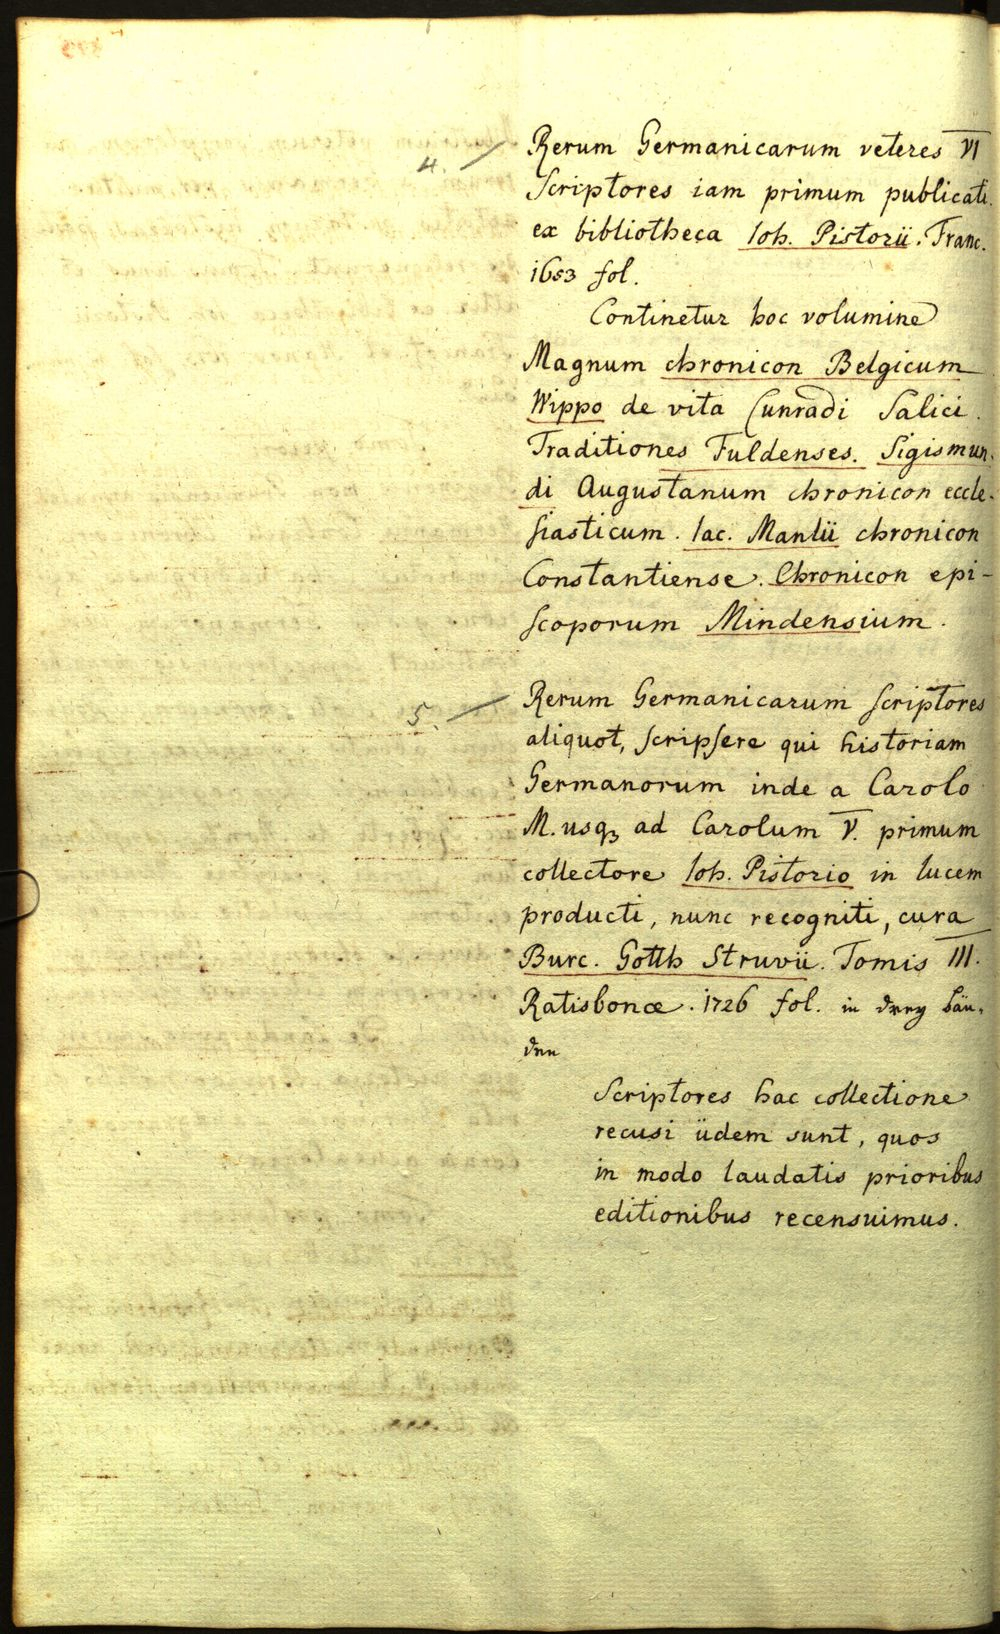 4. Rerum Germanicarum veteres VI
Scriptores iam primum publicati
ex bibliotheca Ioh. Pistorii. Franc.
1653 fol.
Continetur hoc volumine
Magnum chronicon Belgicum
Wippo de vita Cunradi Salici.
Traditiones Fuldenses. Sigismun-
di Augustanum chronicon eccle-
siasticum. Iac. Manlii chronicon
Constantiense. Chronicon epi-
scoporum Mindensium.
5. Rerum Germanicarum scriptores
aliquot, scripsere qui historiam
Germanorum inde a Carolo
M. usq₃ ad Carolum V. primum
collectore Ioh. Pistorio in lucem
producti, nunc recogniti, cura
Burc. Gotth Struvii. Tomis III.
Ratisbonæ. 1726 fol. in drey Bän-
den
Scriptores hac collectione
recusi iidem sunt, quos
in modo laudatis prioribus
editionibus recensuimus.